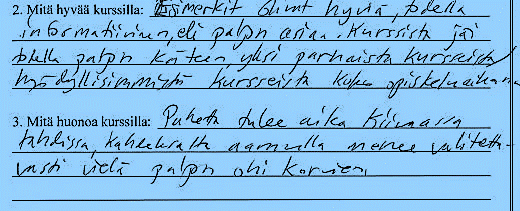 2. Mitä hyvää kurssilla: Esimerkit olivat hyviä, todella
informatiivinen, eli paljon asiaa. Kurssista jäi
todella paljon käteen, yksi parhaista kursseista/
hyödyllisimmistä kursseista koko opiskeluaikana
3. Mitä huonoa kurssilla: Puhetta tulee aika kiivaassa
tahdissa, kahdeksalta aamulla menee valitetta-
vasti vielä paljon ohi korvien.